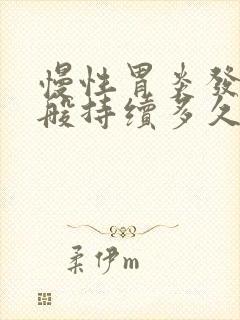 慢性胃炎發
般持續多久
柔伊m